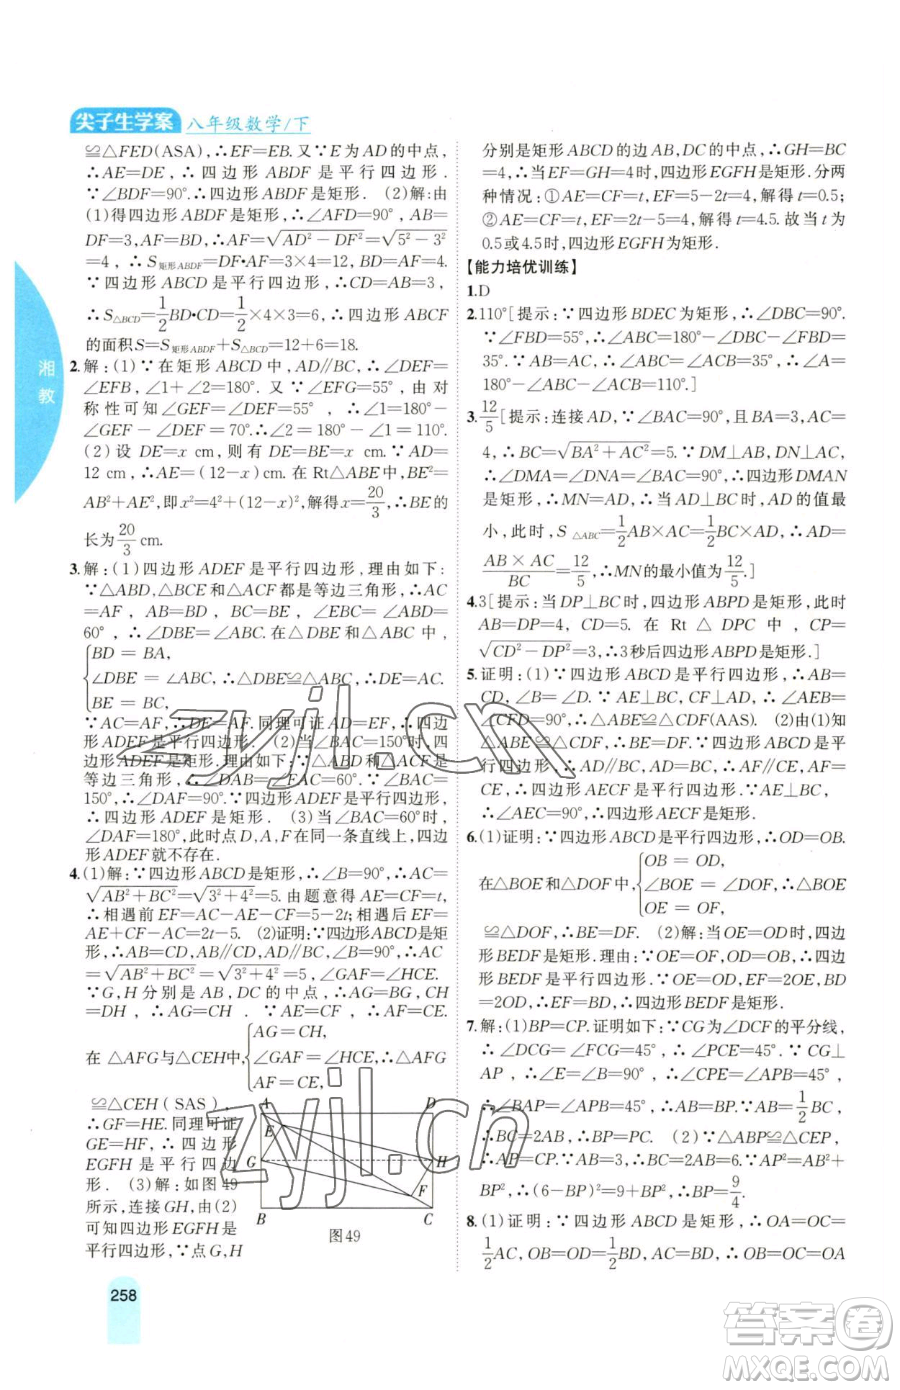 尖子生学案 八年级数学/下
≌△FED(ASA),∴EF=EB.又∵E为AD的中点,
∴AE=DE,∴四边形ABDF是平行四边形.
∵∠BDF=90°.∴四边形ABDF是矩形. (2)解:由
(1)得四边形ABDF是矩形,∴∠AFD=90°,AB=
DF=3,AF=BD,∴AF=√(AD²-DF²)=√(5²-3²)
=4,∴S矩形ABDF=DF·AF=3×4=12.
∵四边形ABCD是平行四边形,∴CD=AB=3,
∴S△BCD=1/2 BD·CD=1/2×4×3=6,∴四边形ABCF
的面积S=S矩形ABDF+S△BCD=12+6=18.
2.解:(1)∵在矩形ABCD中,AD∥BC,∴∠DEF=
∠EFB,∠1+∠2=180°.又∵∠EFG=55°,由对
称性可知∠GEF=∠DEF=55°,∴∠2=
∠GEF-∠DEF=70°.∴∠1=180°-∠2=110°.
(2)设DE=x cm,则有DE=BE=x cm.∵AD=
12 cm,∴AE=(12-x) cm.在Rt△ABE中,BE²=
AB²+AE²,即x²=4²+(12-x)²,解得x=20/3,∴BE的
长为20/3 cm.
3.解:(1)四边形ADEF是平行四边形,理由如下:
∵△ABD,△BCE和△ACF都是等边三角形,
∴AC=AF,AB=BD,BC=BE,∠DBA=∠EBC=
60°,∴∠DBE=∠ABC.在△DBE和△ABC中,
{BD=BA,
∠DBE=∠ABC,∴△DBE≌△ABC,∴DE=AC.
BE=BC,
∵AC=AF,∴DE=AF.同理可证AD=EF,∴四边
形ADEF是平行四边形. (2)当∠BAC=150°时,四
边形ADEF是矩形.理由如下:∵△ABD,△ACF是
等边三角形,∴∠DAB=∠FAC=60°.∵∠BAC=
150°,∴∠DAF=90°.∵四边形ADEF是平行四边形,
∴四边形ADEF是矩形. (3)当∠BAC=60°时,
∠DAF=180°,此时点D,A,F在同一条直线上,四边
形ADEF就不存在.
4.(1)解:∵四边形ABCD是矩形,∴∠B=90°,∴AC=
√(AB²+BC²)=√(3²+4²)=5.由题意得AE=CF=t,
∴相遇前EF=AC-AE-CF=5-2t;相遇后EF=
AE+CF-AC=2t-5. (2)证明:∵四边形ABCD是矩
形,∴AB=CD,AB∥CD,AD∥BC,∠B=90°,∴AC
=√(AB²+BC²)=√(3²+4²)=5,∠GAF=∠HCE.
∵G,H分别是AB,DC的中点,∴AG=BG,CH
=DH,∴AG=CH. ∵AE=CF,∴AF=CE.
在△AFG与△CEH中,{AG=CH,
∠GAF=∠HCE,∴△AFG
AF=CE,
≌△CEH(SAS),
∴GF=HE.同理可证
GE=HF,∴四边形
EGFH是平行四边
形. (3)解:如图49
所示,连接GH,由(2)
可知四边形EGFH是
平行四边形,∵点G,H
A D E G H F B C
图49
分别是矩形ABCD的边AB,DC的中点,∴GH=BC=
=4,∴当EF=GH=4时,四边形EGFH是矩形.分两
种情况:①AE=CF=t,EF=5-2t=4,解得t=0.5;
②AE=CF=t,EF=2t-5=4,解得t=4.5.故当t为
0.5或4.5时,四边形EGFH为矩形.
【能力培优训练】
1.D
2.110°[提示:∵四边形BDEC为矩形,∴∠DBC=90°.
∵∠FBD=55°,∴∠ABC=180°-∠DBC-∠FBD=
35°.∵四边形ABCD为平行四边形,∴∠A=
180°-∠ABC=110°.]
3.12/5[提示:连接AD,∵∠BAC=90°,且BA=3,AC=
4,∴BC=√(BA²+AC²)=5.∵DM⊥AB,DN⊥AC,
∴∠DMA=∠DNA=∠BAC=90°,∴四边形DMAN
是矩形,∴MN=AD,∴当AD⊥BC时,AD的值最
小,此时,S△ABC=1/2 AB×AC=1/2 BC×AD,∴AD=
AB×AC/BC=12/5,∴MN的最小值为12/5.]
4.3[提示:当DP⊥BC时,四边形ABPD是矩形,此时
AB=DP=4,CD=5.在Rt△DPC中,CP=
√(CD²-DP²)=3,∴3秒后四边形ABPD是矩形.]
5.证明:(1)∵四边形ABCD是平行四边形,∴AB=
CD,∠B=∠D.∵AE⊥BC,CF⊥AD,∴∠AEB=
∠CFD=90°,∴△ABE≌△CDF(AAS). (2)由(1)知
△ABE≌△CDF,∴BE=DF.∵四边形ABCD是平
行四边形,∴AD∥BC,AD=BC,∴AF∥CE,AF=
CE,∴四边形AECF是平行四边形.∵AE⊥BC,
∴∠AEC=90°,∴四边形AECF是矩形.
6.(1)证明:∵四边形ABCD是平行四边形,∴OD=OB.
在△BOE和△DOF中,{OB=OD,
∠BOE=∠DOF,∴△BOE
OE=OF,
≌△DOF,∴BE=DF. (2)解:当OE=OD时,四边
形BEDF是矩形.理由:∵△BOE≌△DOF,∴四边
形BEDF是平行四边形.∵OE=OD,EF=2OE,BD
=2OD,∴EF=BD,∴四边形BEDF是矩形.
7.解:(1)BP=CP.证明如下:∵CG为∠DCF的平分线,
∴∠DCG=∠FCG=45°,∴∠PCE=45°.∵CG⊥
AP,∴∠E=∠B=90°,∴∠CPE=45°=∠APB,
∴∠BAP=∠APB=45°,∴AB=BP.∵AB=1/2 BC,
∴BC=2AB,∴BP=PC. (2)∵△ABP≌△CEP,
∴AP=CP.∵AB=3,∴BC=2AB=6.∵AP²=AB²+BP²,
∴(6-BP)²=9+BP²,∴BP=9/4.
8.(1)证明:∵四边形ABCD是矩形,∴OA=OC=
1/2 AC,OB=OD=1/2 BD,AC=BD,∴OB=OC=OA
258
湘教
zyjl.cn
zyjl.cn
答案圈
MXQE.COM